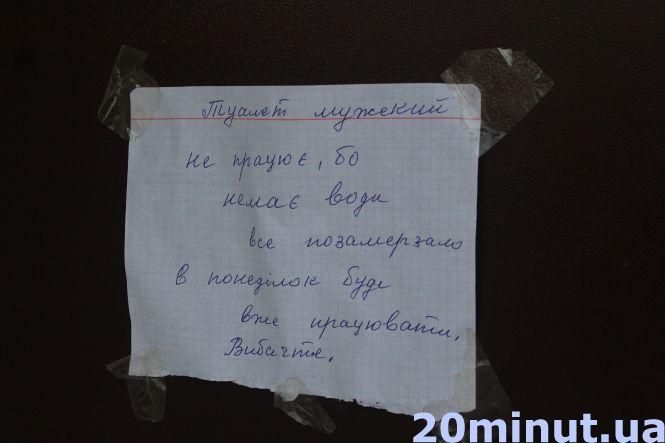 Туалет мужский
не працює, бо
немає води
все позамерзало
в понеділок буде
вже працювати.
Вибачте.
20minut.ua